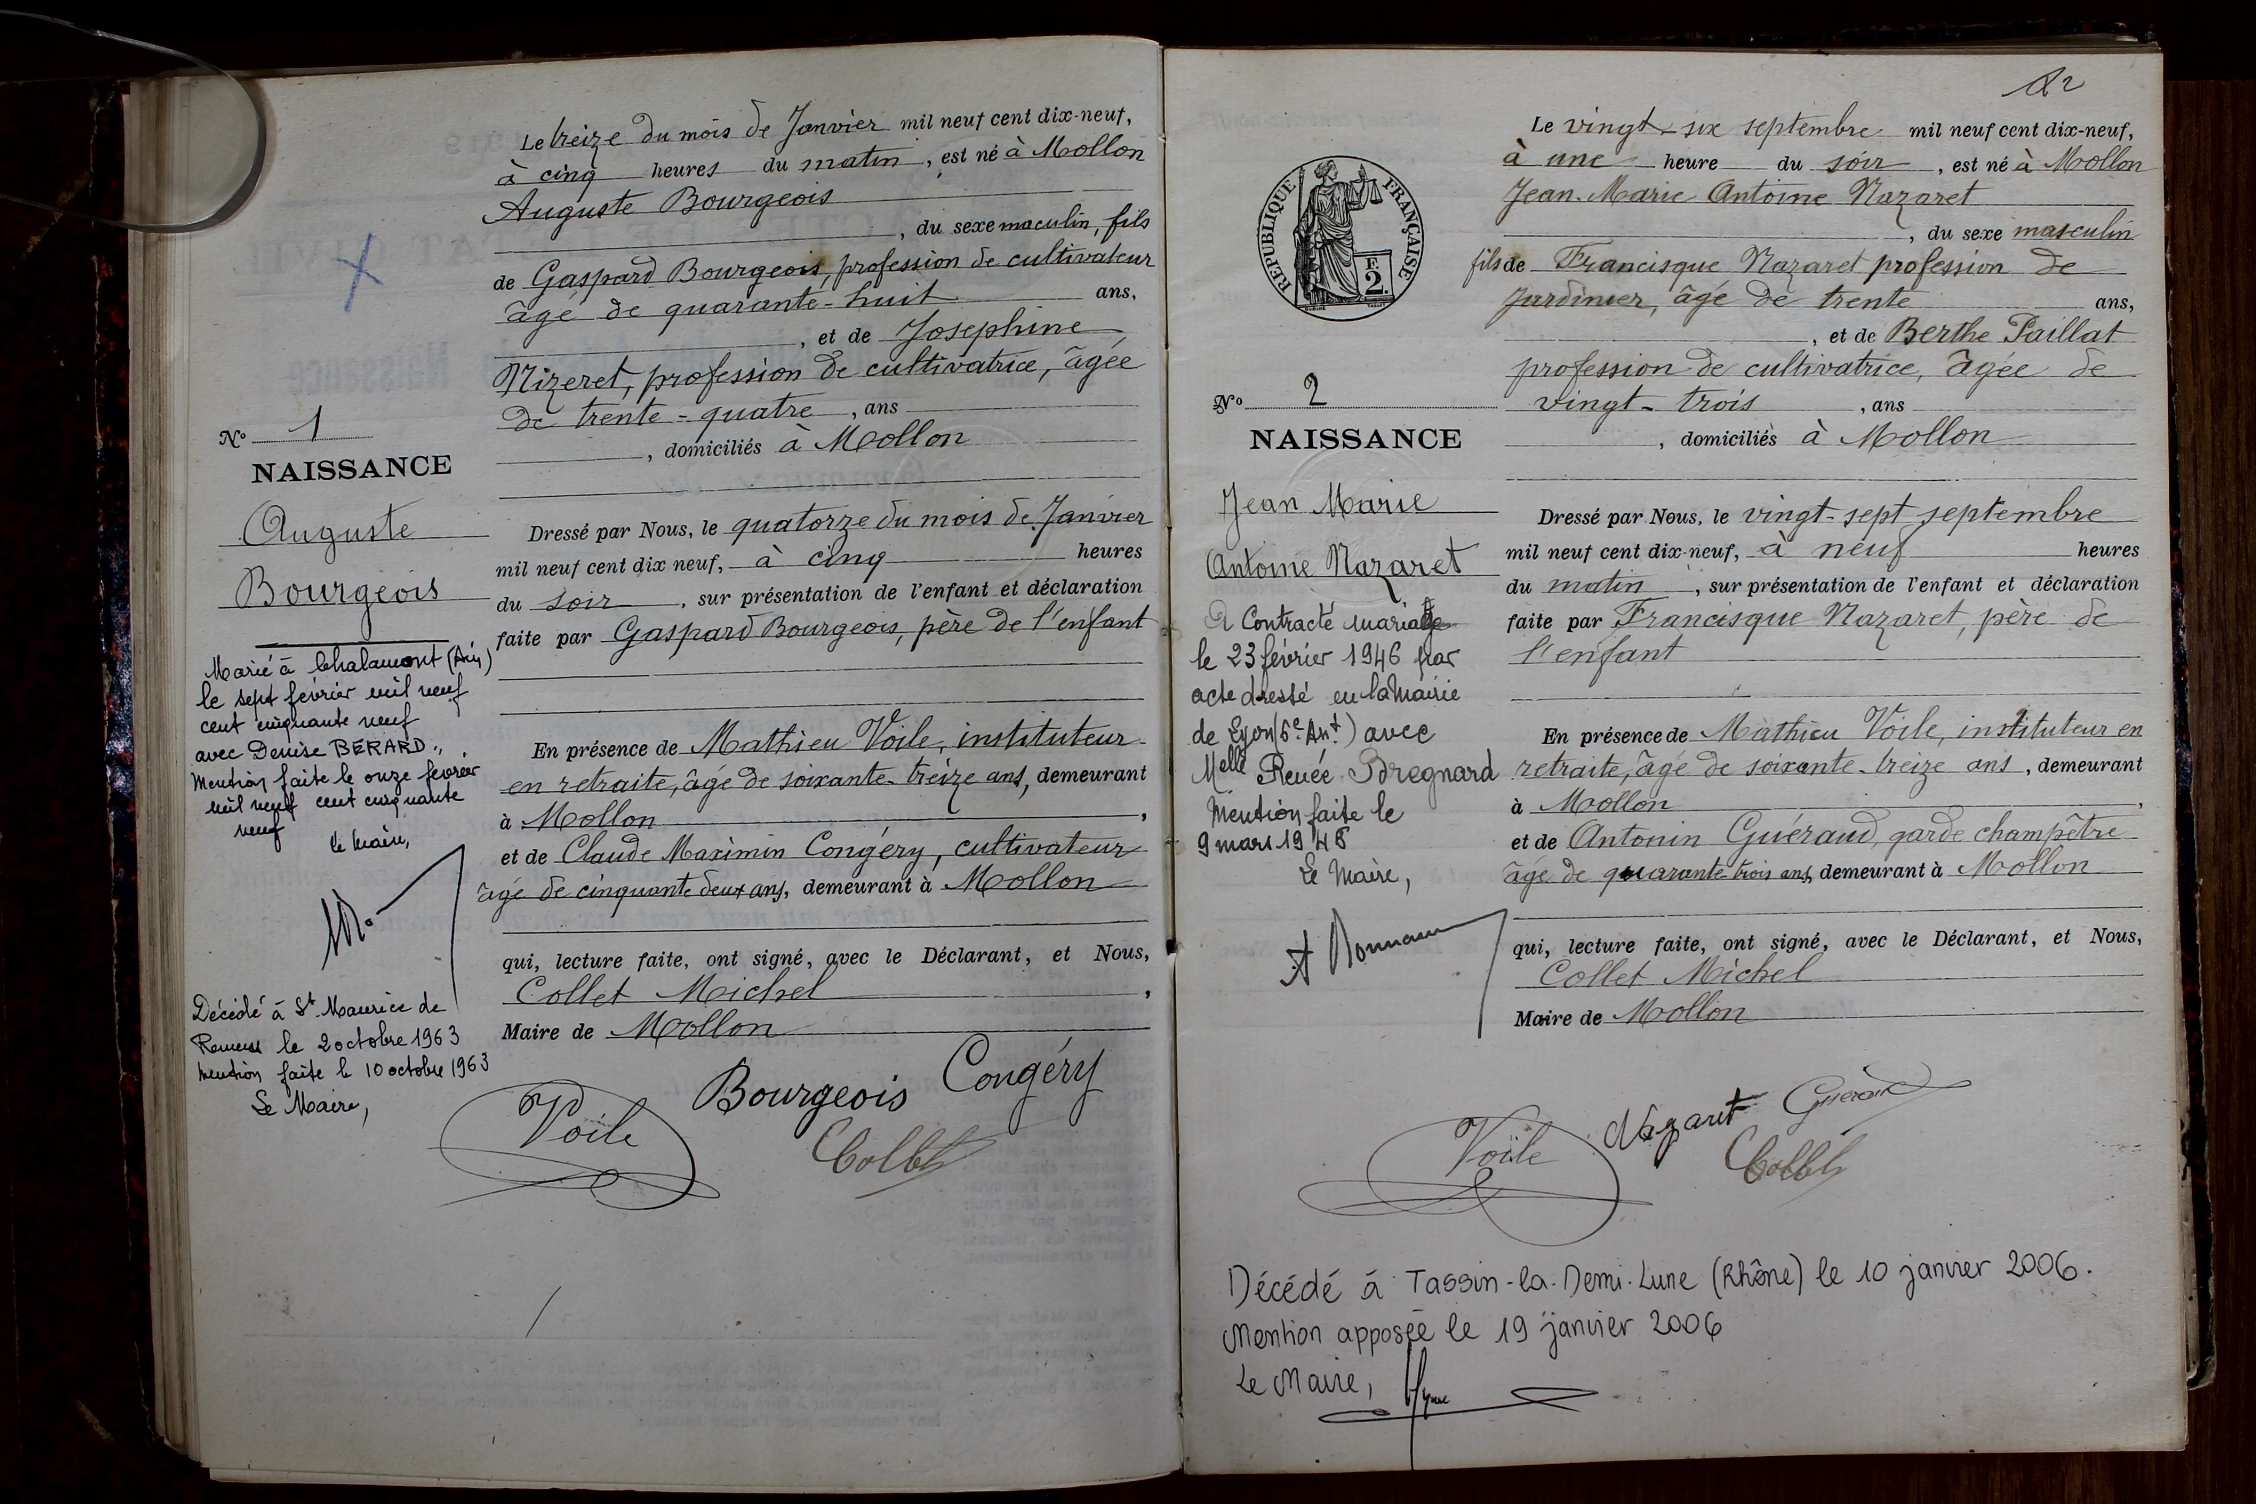 Le treize du mois de Janvier mil neuf cent dix-neuf,
à cinq heures du matin, est né à Mollon
Auguste Bourgeois
, du sexe masculin, fils
de Gaspard Bourgeois, profession de cultivateur
âgé de quarante-huit ans,
, et de Josephine
Nizeret, profession de cultivatrice, âgée
de trente-quatre, ans
, domiciliés à Mollon
No 1
NAISSANCE
Auguste
Bourgeois
Dressé par Nous, le quatorze du mois de Janvier
mil neuf cent dix neuf, à cinq heures
du soir, sur présentation de l'enfant et déclaration
faite par Gaspard Bourgeois, père de l'enfant
Marié à Chalamont (Ain)
le sept février mil neuf
cent cinquante neuf
avec Denise BERARD.,,
Mention faite le onze fevrier
mil neuf cent cinquante
neuf
Le Maire,
En présence de Mathieu Voile, instituteur
en retraite, âgé de soixante-treize ans, demeurant
à Mollon,
et de Claude Maximin Congéry, cultivateur
âgé de cinquante deux ans, demeurant à Mollon
qui, lecture faite, ont signé, avec le Déclarant, et Nous,
Collet Michel,
Maire de Mollon
Décédé à St Maurice de
le 2 octobre 1963
Mention faite le 10 octobre 1963
Le Maire,
Voile Bourgeois Congéry
Collet
R2
Le vingt-six septembre mil neuf cent dix-neuf,
à une heure du soir, est né à Mollon
Jean-Marie Antoine Nazaret
, du sexe masculin
fils de Francisque Nazaret profession de
Jardinier, âgé de trente ans,
, et de Berthe Paillat
profession de cultivatrice, âgée de
vingt-trois, ans
, domiciliés à Mollon
REPUBLIQUE FRANÇAISE
2
No 2
NAISSANCE
Jean Marie
Antoine Nazaret
Dressé par Nous, le vingt-sept septembre
mil neuf cent dix-neuf, à neuf heures
du matin, sur présentation de l'enfant et déclaration
faite par Francisque Nazaret, père de
l'enfant
A Contracté mariage
le 23 février 1946 par
acte dressé en la Mairie
de Lyon (6e Art) avec
Melle Renée Bregnard
Mention faite le
9 mars 1946
Le Maire,
En présence de Mathieu Voile, instituteur en
retraite, âgé de soixante-treize ans, demeurant
à Mollon,
et de Antonin Guéraud, garde champêtre
âgé de quarante-trois ans, demeurant à Mollon
qui, lecture faite, ont signé, avec le Déclarant, et Nous,
Collet Michel
Maire de Mollon
Voile Nazaret Guéraud
Collet
Décédé à Tassin-la-Demi-Lune (Rhône) le 10 janvier 2006.
Mention apposée le 19 janvier 2006
Le Maire,